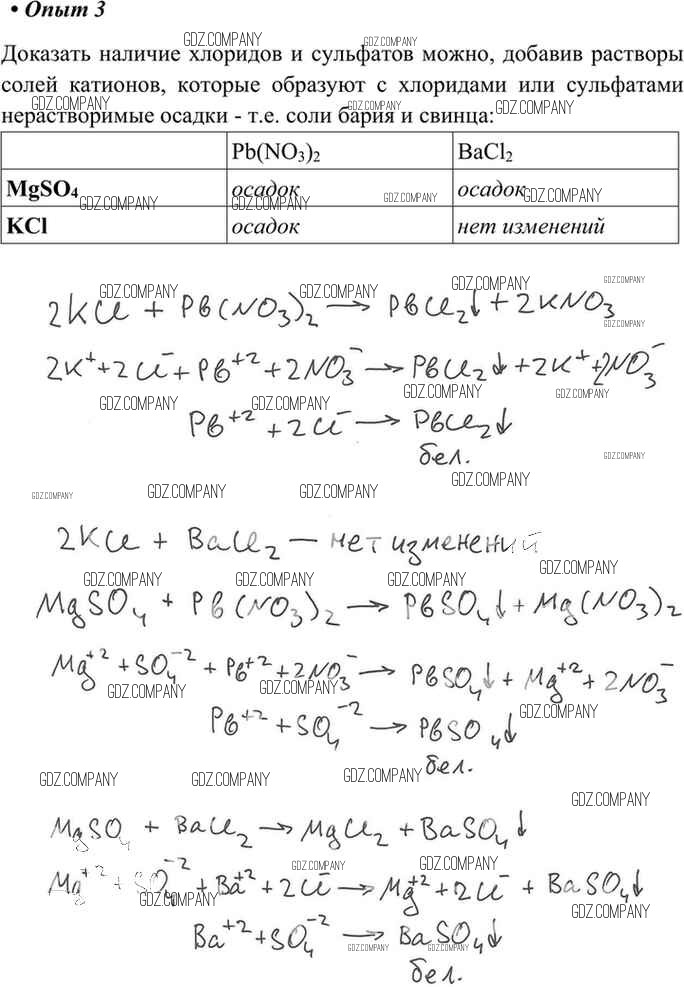 • Опыт 3
Доказать наличие хлоридов и сульфатов можно, добавив растворы
солей катионов, которые образуют с хлоридами или сульфатами
нерастворимые осадки - т.е. соли бария и свинца:
Pb(NO₃)₂ BaCl₂
MgSO₄ осадок осадок
KCl осадок нет изменений
2KCl + Pb(NO₃)₂ → PbCl₂↓ + 2KNO₃
2K⁺ + 2Cl⁻ + Pb⁺² + 2NO₃⁻ → PbCl₂↓ + 2K⁺ + 2NO₃⁻
Pb⁺² + 2Cl⁻ → PbCl₂↓
бел.
2KCl + BaCl₂ — нет изменений
MgSO₄ + Pb(NO₃)₂ → PbSO₄↓ + Mg(NO₃)₂
Mg⁺² + SO₄⁻² + Pb⁺² + 2NO₃⁻ → PbSO₄↓ + Mg⁺² + 2NO₃⁻
Pb⁺² + SO₄⁻² → PbSO₄↓
бел.
MgSO₄ + BaCl₂ → MgCl₂ + BaSO₄↓
Mg⁺² + SO₄⁻² + Ba⁺² + 2Cl⁻ → Mg⁺² + 2Cl⁻ + BaSO₄↓
Ba⁺² + SO₄⁻² → BaSO₄↓
бел.
GDZ.COMPANY